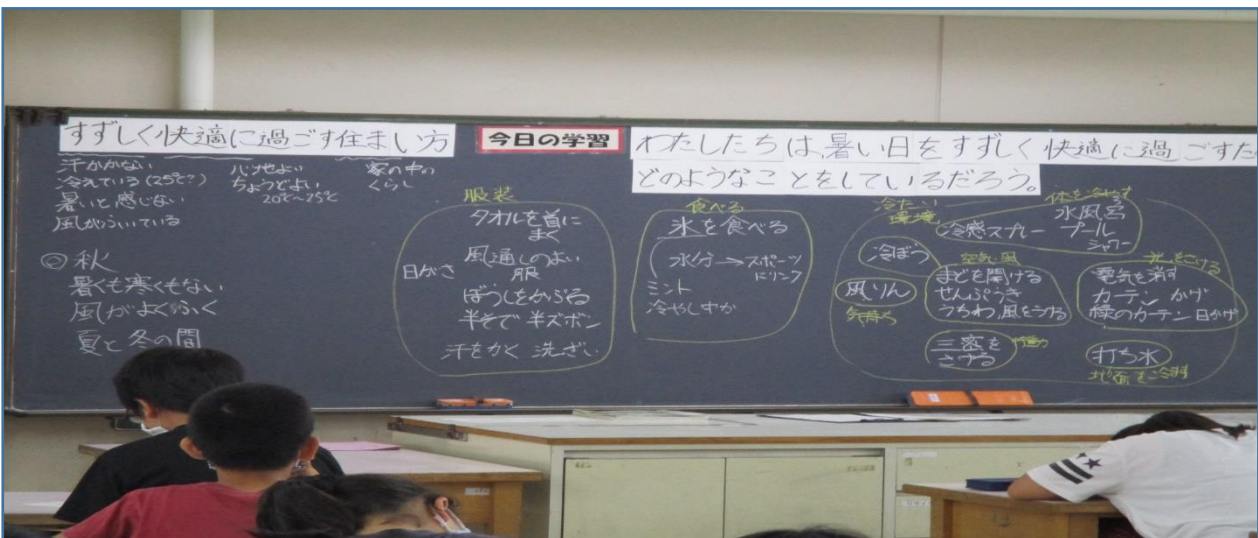 すずしく快適に過ごす住まい方
今日の学習
わたしたちは、暑い日をすずしく快適に過ごすた
どのようなことをしているだろう。
汗かかない
冷えている(25℃?)
暑いと感じない
風がふいている
心地よい
ちょうどよい
20℃~25℃
家の中の
くらし
◎秋
暑くも寒くもない
風がよくふく
夏と冬の間
服装
タオルを首に
まく
日がさ
風通しのよい
服
ぼうしをかぶる
半そで 半ズボン
汗をかく 洗ざい
食べる
氷を食べる
水分→スポーツ
ドリンク
ミント
冷やし
冷たい
環境
体を冷やす
冷感スプレー
水風呂
プール
シャワー
冷ぼう
風りん
気持ち
空気・風
まどを開ける
せんぷうき
うちわ,風をうける
光をさける
電気を消す
カーテン かげ
緑のカーテン 日かげ
三密を
さける
打ち水
地面を冷やす